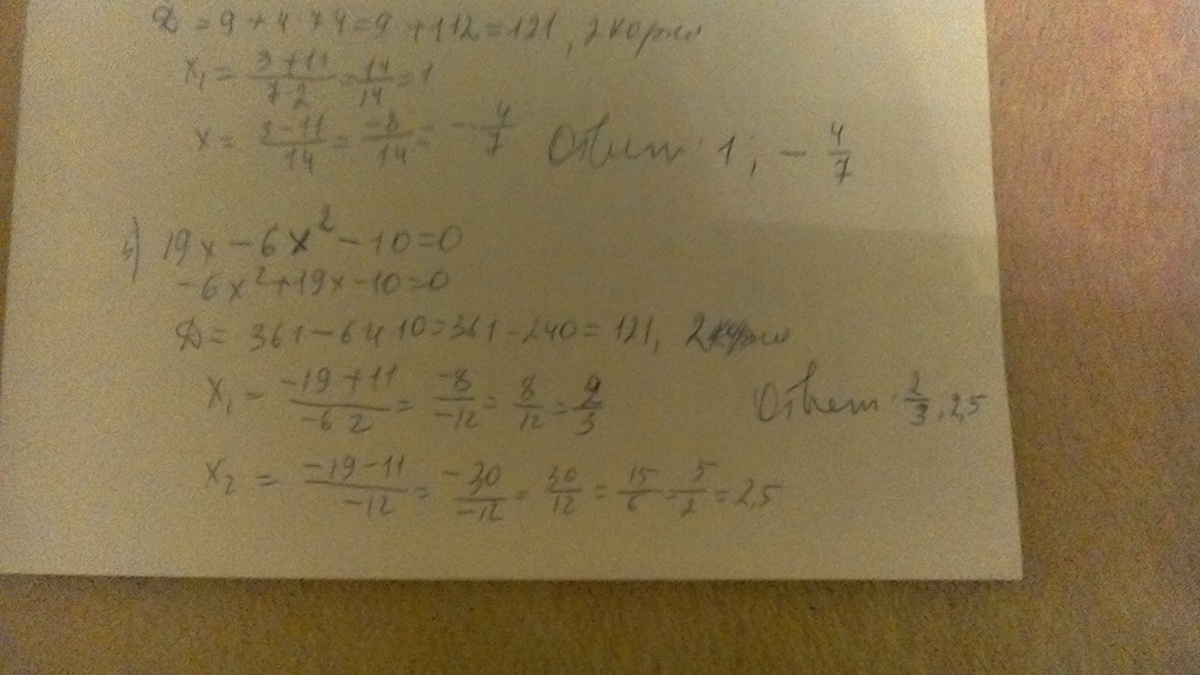 D = 9 + 4 7 4 = 9 + 112 = 121, 2 корня
x₁ = (3+11)/(7 2) = 14/14 = 1
x = (3-11)/14 = -8/14 = -4/7 Ответ: 1; -4/7
19x - 6x² - 10 = 0
-6x² + 19x - 10 = 0
D = 361 - 6 4 10 = 361 - 240 = 121, 2 корня
x₁ = (-19+11)/(-6 2) = -8/-12 = 8/12 = 2/3 Ответ: 2/3, 2,5
x₂ = (-19-11)/-12 = -30/-12 = 30/12 = 15/6 = 5/2 = 2,5